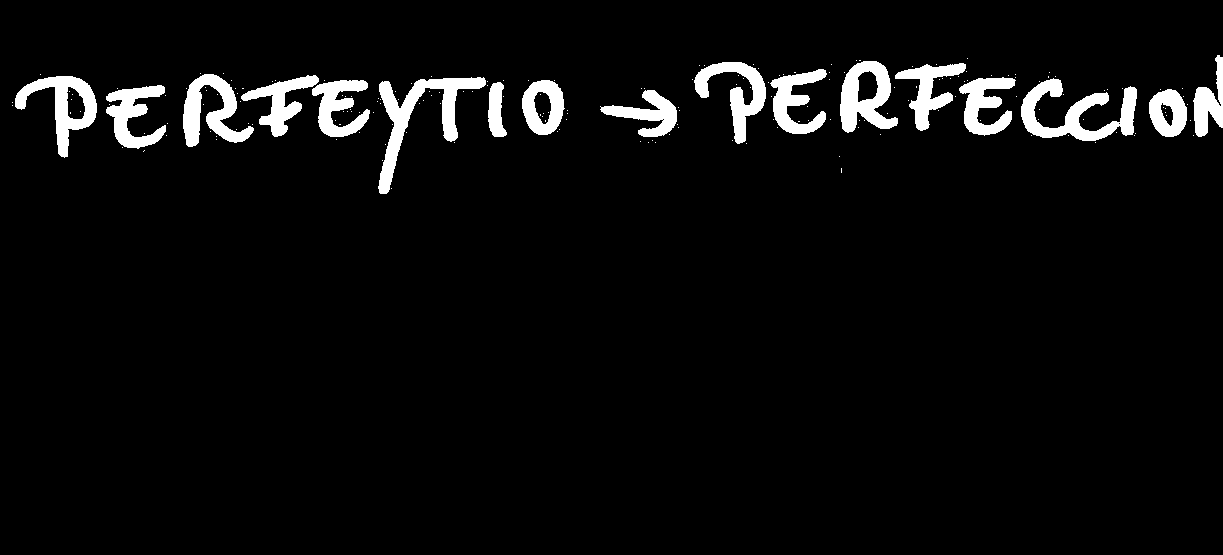 PERFEYTIO → PERFECCION